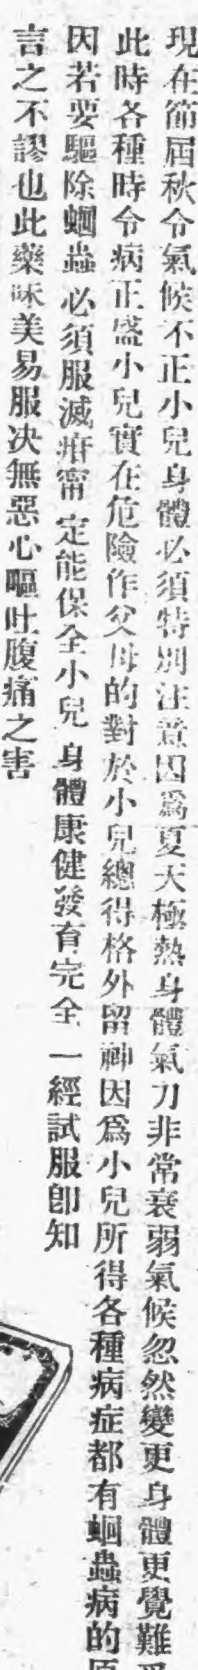 現在節屆秋令氣候不正小兒身體必須特別注意因爲夏天極熱身體氣力非常衰弱氣候忽然變更身體更覺難受
此時各種時令病正盛小兒實在危險作父母的對於小兒總得格外留神因爲小兒所得各種病症都有蛔蟲病的原
因若要驅除蛔蟲必須服滅疳甯定能保全小兒身體康健發育完全一經試服卽知
言之不謬也此藥味美易服决無惡心嘔吐腹痛之害